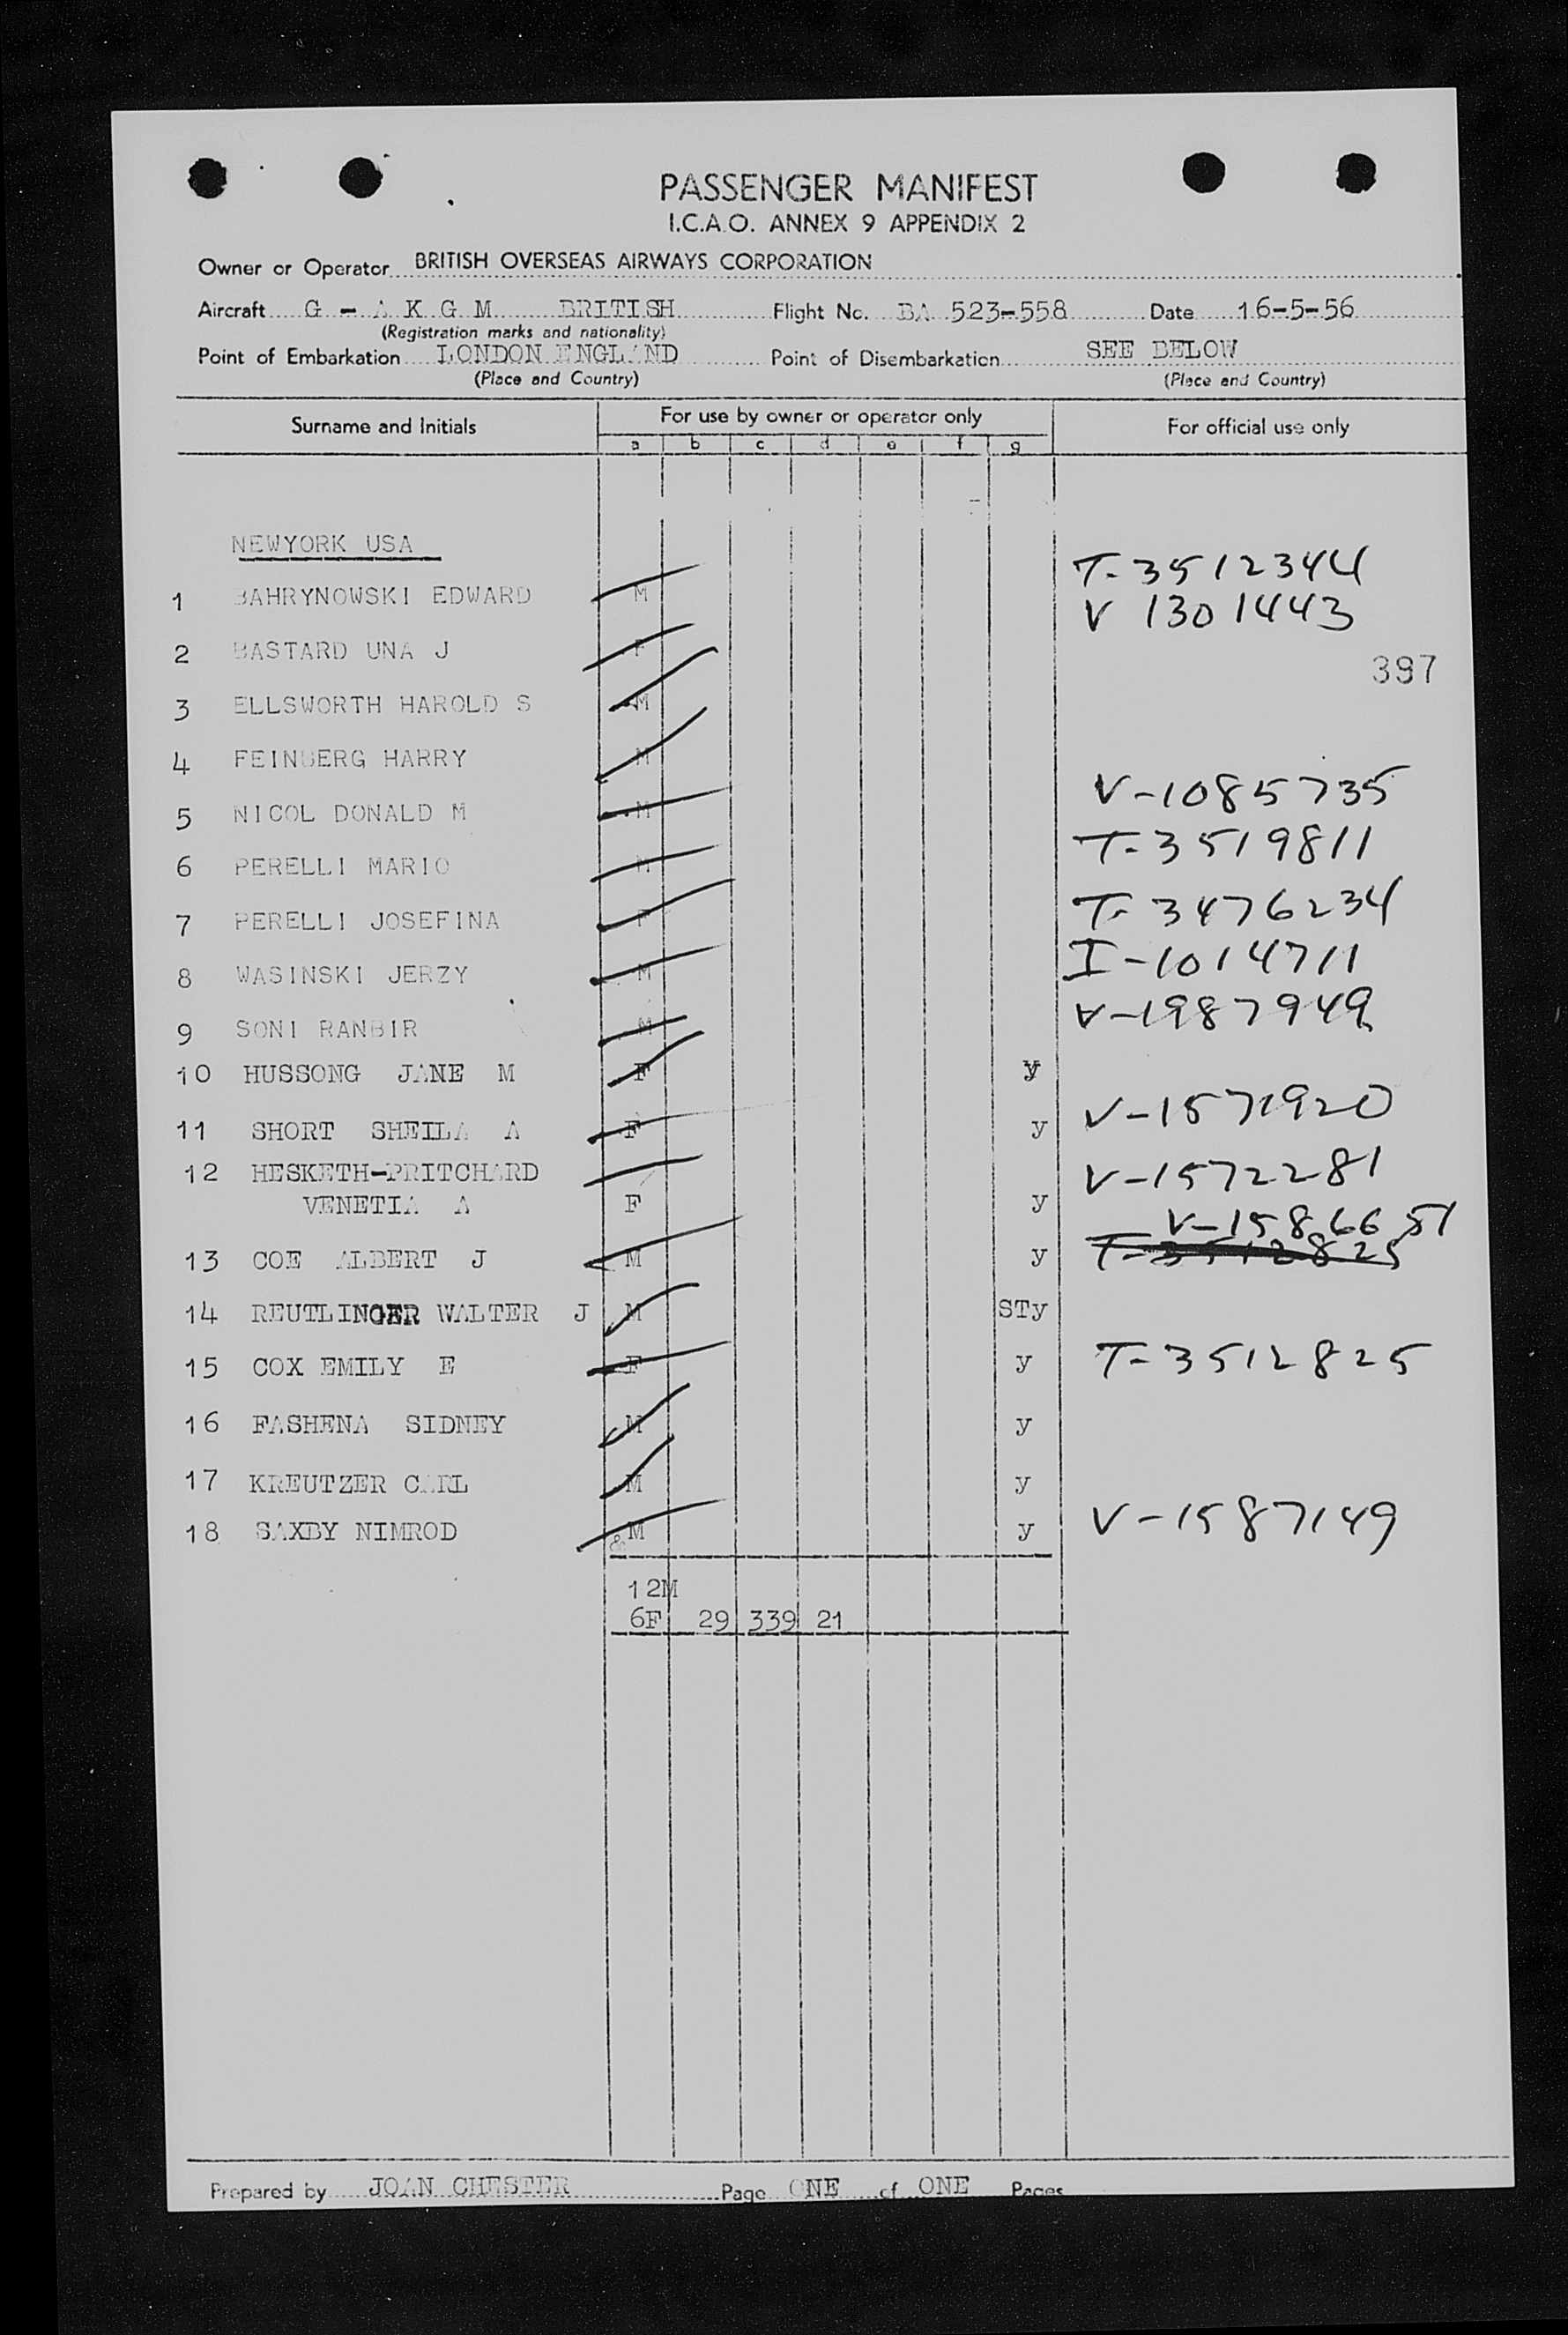 PASSENGER MANIFEST
I.C.A.O. ANNEX 9 APPENDIX 2
Owner or Operator BRITISH OVERSEAS AIRWAYS CORPORATION
Aircraft G - A K G M BRITISH Flight No. BA 523-558 Date 16-5-56
(Registration marks and nationality)
Point of Embarkation LONDON ENGLAND Point of Disembarkation SEE BELOW
(Place and Country) (Place and Country)
Surname and Initials For use by owner or operator only For official use only
a b c d e f g
NEWYORK USA
T-3512344
1 BAHRYNOWSKI EDWARD M
V 1301443
2 BASTARD UNA J F
397
3 ELLSWORTH HAROLD S M
4 FEINBERG HARRY M
V-1085735
5 NICOL DONALD M M
T-3519811
6 PERELLI MARIO M
7 PERELLI JOSEFINA F T-3476234
8 WASINSKI JERZY M I-1014711
9 SONI RANBIR M V-1987949
10 HUSSONG JANE M F y
11 SHORT SHEILA A F y V-1571920
12 HESKETH-PRITCHARD V-1572281
VENETIA A F y
V-1586651
13 COE ALBERT J M y T-3512825
14 REUTLINGER WALTER J M STy
15 COX EMILY E F y T-3512825
16 FASHENA SIDNEY M y
17 KREUTZER CARL M y
18 SAXBY NIMROD M y V-1587149
12M
6F 29 339 21
Prepared by JOAN CHESTER Page ONE of ONE Pages